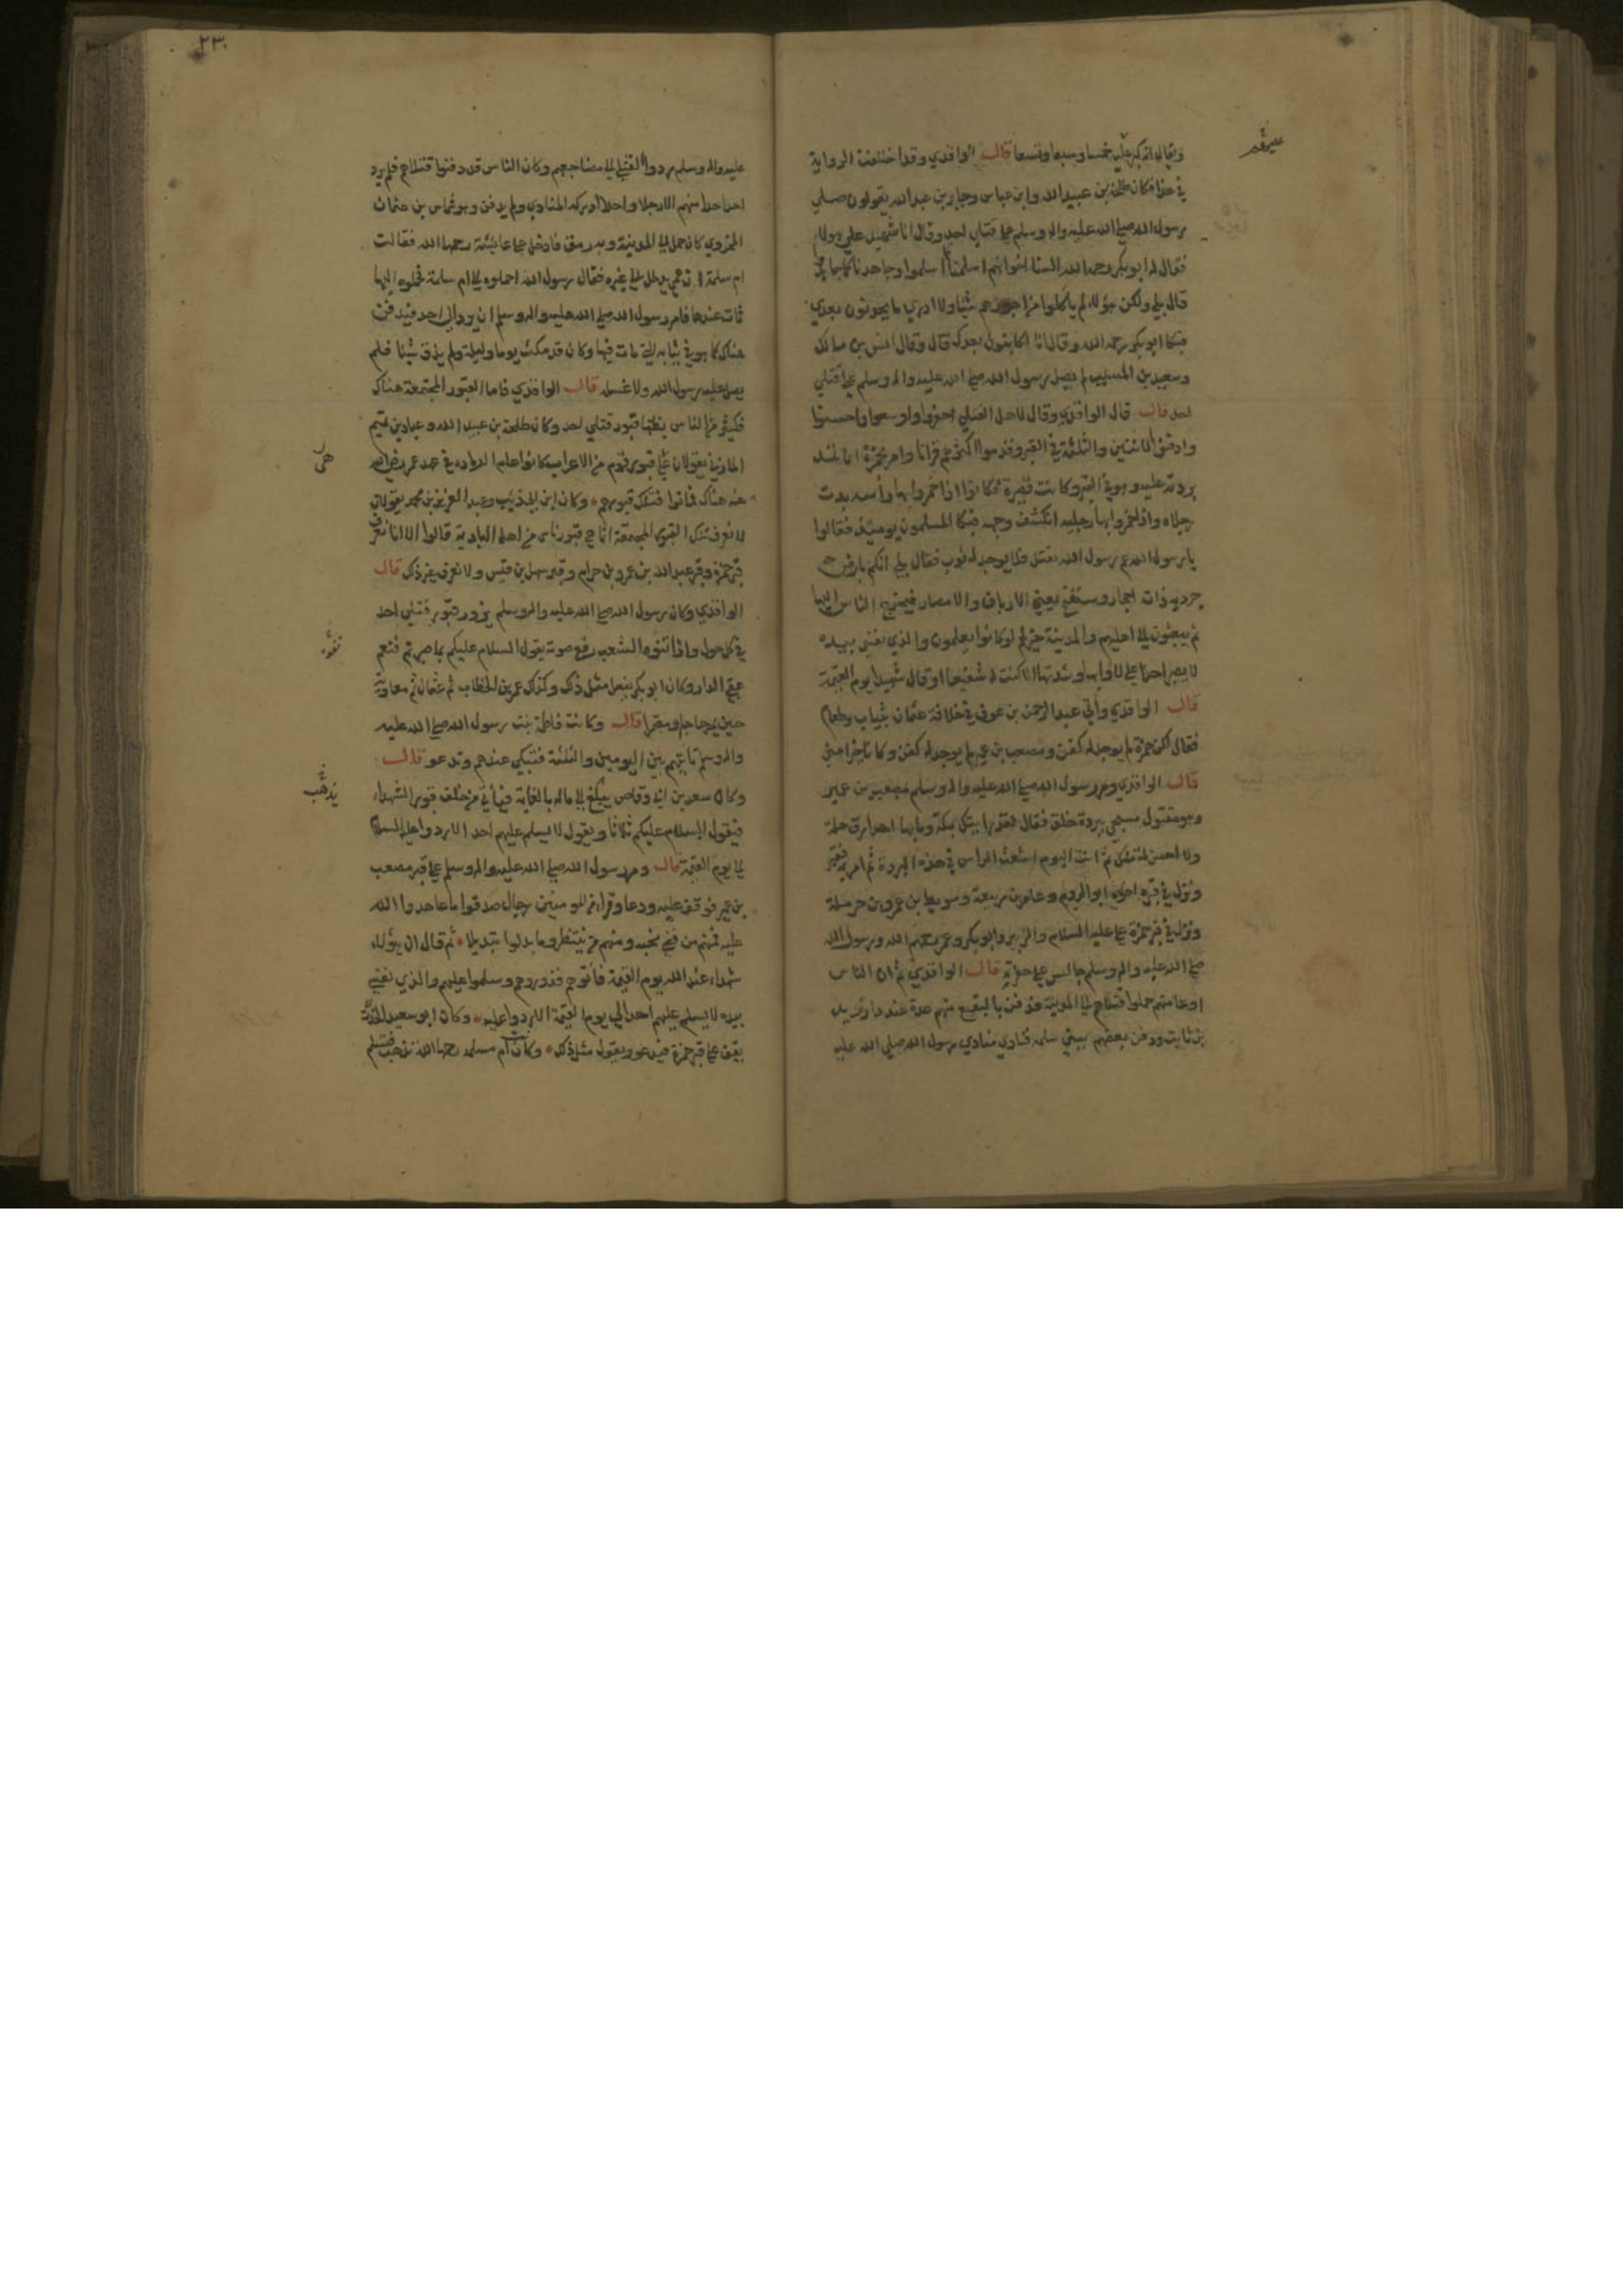 ويقال انه كبر عليه خمسا وسبعا وتسعا قال الواقدي وقد اختلفت الرواية
في هذا فكان طلحة بن عبيد الله وابن عباس وجابر بن عبد الله يقولون صلى
رسول الله صلى الله عليه واله وسلم على قتلى احد وقال انا شهيد على هولاء
فقال له ابو بكر رحمه الله السنا اخوانهم اسلمنا كما اسلموا وجاهدنا كما جاهدوا
قال بلى ولكن هؤلاء لم ياكلوا من اجورهم شيئا ولا ادري ما يحدثون بعدي
فبكا ابو بكر رحمه الله وقال انا لكائنون بعدك قال وقال انس بن مالك
وسعيد بن المسيب لم يصل رسول الله صلى الله عليه واله وسلم على قتلى
احد قال قال الواقدي وقال لاهل القتلى احفروا واوسعوا واحسنوا
وادفنوا الاثنين والثلثة في القبر وقدموا اكثرهم قرانا وامر بحمزة ان تمد
بردته عليه وهو في القبر وكانت قصيرة فكانوا اذا خمروا بها رأسه بدت
رجلاه واذا خمروا بها رجليه انكشف وجهه فبكا المسلمون يومئذ فقالوا
يا رسول الله عم رسول الله يقتل فلا يوجد له ثوب فقال بلى انكم بارض
جردية ذات احجار وستفتح يعني الارياف والامصار فيخرج الناس اليها
ثم يبعثون الى اهليهم والمدينة خير لهم لو كانوا يعلمون والذي نفسي بيده
لا يصبر احد على لاوائها وشدتها الا كنت له شفيعا او قال شهيدا يوم القيمة
قال الواقدي وأتي عبد الرحمن بن عوف في خلافة عثمان بثياب وطعام
فقال لكن حمزة لم يوجد له كفن ومصعب بن عمير لم يوجد له كفن وكانا خيرا مني
قال الواقدي ومر رسول الله صلى الله عليه واله وسلم بمصعب بن عمير
وهو مقتول مسجى ببردة خلق فقال لقد رايتك بمكة وما بها احد ارق حلة
ولا احسن لمة منك ثم انت اليوم اشعث الراس في هذه البردة ثم امر به فقبر
ونزل في قبره اخوه ابو الروم وعامر بن ربيعة وسويبط بن عمرو بن حرملة
ونزل في قبر حمزة علي عليه السلام والزبير وابو بكر وعمر رحمهم الله ورسول الله
صلى الله عليه واله وسلم جالس على حفرته قال الواقدي ثم ان الناس
او عامتهم حملوا قتلاهم الى المدينة فدفن بالبقيع منهم عدة عند دار زيد
بن ثابت ودفن بعضهم ببني سلمه فنادى منادي رسول الله صلى الله عليه
٢٣٠
عليه واله وسلم ردوا القتلى الى مضاجعهم وكان الناس قد دفنوا قتلاهم فلم يرد
احد احدا منهم الا رجلا واحدا ادركه المنادي ولم يدفن وهو شماس بن عثمان
المخزومي كان حمل الى المدينة وبه رمق فادخل على عائشة رحمها الله فقالت
ام سلمة ابن عمي يدخل على غيري فقال رسول الله احملوه الى ام سلمة فحملوه اليها
فمات عندها فامر رسول الله صلى الله عليه واله وسلم ان يرد الى احد فيدفن
هناك كما هو في ثيابه التي مات فيها وكان قد مكث يوما وليلة ولم يذق شيئا فلم
يصل عليه رسول الله ولا غسله قال الواقدي فاما القبور المجتمعة هناك
فكثير من الناس يظنها قبور قتلى احد وكان طلحة بن عبيد الله وعباد بن تميم
المازني يقولان هي قبور قوم من الاعراب كانوا عام الرمادة في عهد عمر رضي الله
عنه هناك فماتوا فتلك قبورهم وكان ابن ابي ذئب وعبد العزيز بن محمد يقولان
لا نعرف تلك القبور المجتمعة انما هي قبور ناس من اهل البادية قالوا الا انا نعرف
قبر حمزة وقبر عبد الله بن عمرو بن حرام وقبر سهل بن قيس ولا نعرف غير ذلك قال
الواقدي وكان رسول الله صلى الله عليه واله وسلم يزور قبور قتلى احد
في كل حول واذا تفوه الشعب رفع صوته يقول السلام عليكم بما صبرتم فنعم
عقبى الدار وكان ابو بكر يفعل مثل ذلك وكذلك عمر بن الخطاب ثم عثمان ثم معاوية
حين يمر حاجا ومعتمرا قال وكانت فاطمة بنت رسول الله صلى الله عليه
واله وسلم تاتيهم بين اليومين والثلثة فتبكي عندهم وتدعو قال
وكان سعد بن ابي وقاص يذهب الى ماله بالغابة فياتي من خلف قبور الشهداء
فيقول السلام عليكم ثلاثا ويقول لا يسلم عليهم احد الا ردوا عليه السلام
الى يوم القيمة قال ومر رسول الله صلى الله عليه واله وسلم على قبر مصعب
بن عمير فوقف عليه ودعا وقرا من المومنين رجال صدقوا ما عاهدوا الله
عليه فمنهم من قضى نحبه ومنهم من ينتظر وما بدلوا تبديلا ثم قال ان هؤلاء
شهداء عند الله يوم القيمة فأتوهم فزوروهم وسلموا عليهم والذي نفسي
بيده لا يسلم عليهم احد الى يوم القيمة الا ردوا عليه وكان ابو سعيد الخدري
يقف على قبر حمزة فيدعو ويقول مثل ذلك وكانت ام سلمه رحمها الله تذهب فتسلم
هى
تفوه
يذهب